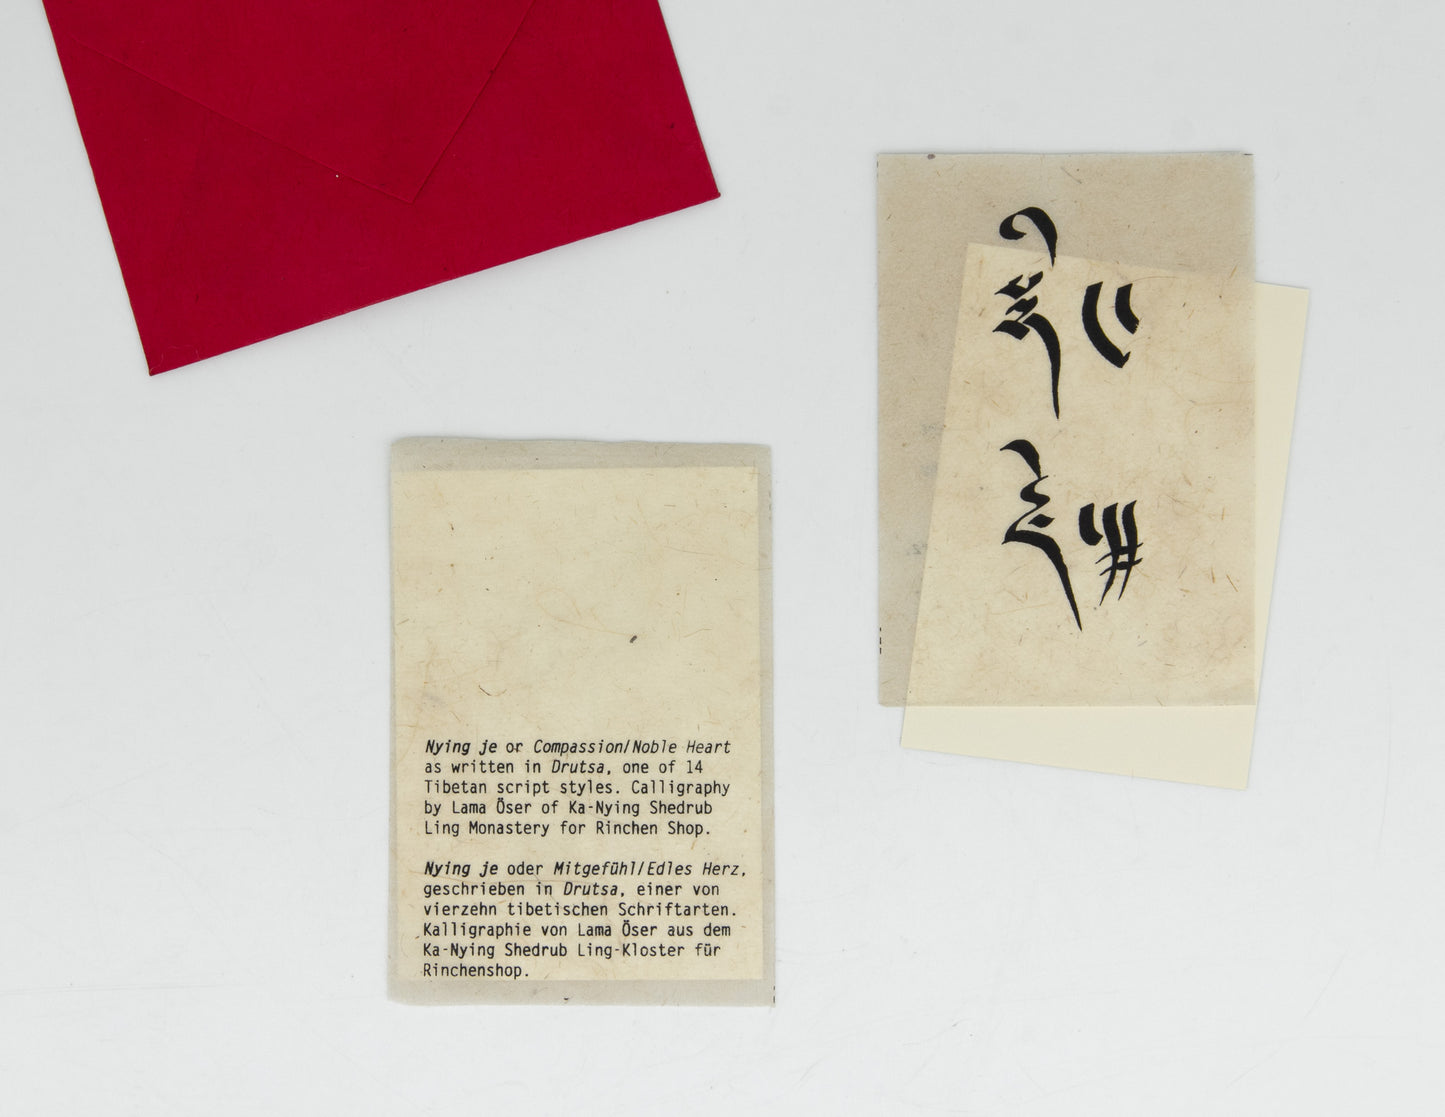 སྙིང
རྗེ
Nying je or Compassion/Noble Heart
as written in Drutsa, one of 14
Tibetan script styles. Calligraphy
by Lama Öser of Ka-Nying Shedrub
Ling Monastery for Rinchen Shop.
Nying je oder Mitgefühl/Edles Herz,
geschrieben in Drutsa, einer von
vierzehn tibetischen Schriftarten.
Kalligraphie von Lama Öser aus dem
Ka-Nying Shedrub Ling-Kloster für
Rinchenshop.